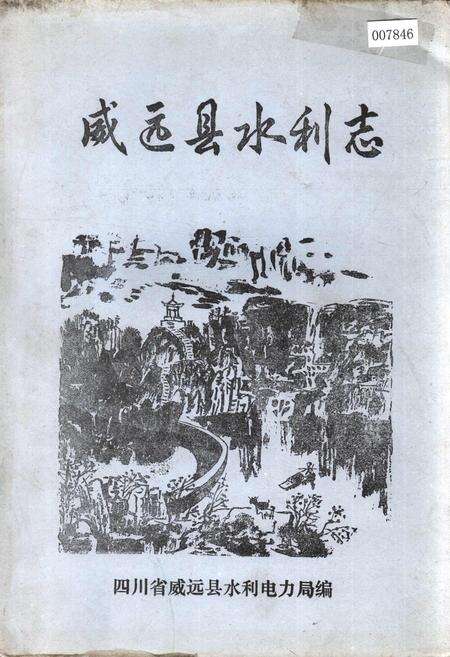 007846
威远县水利志
四川省威远县水利电力局编